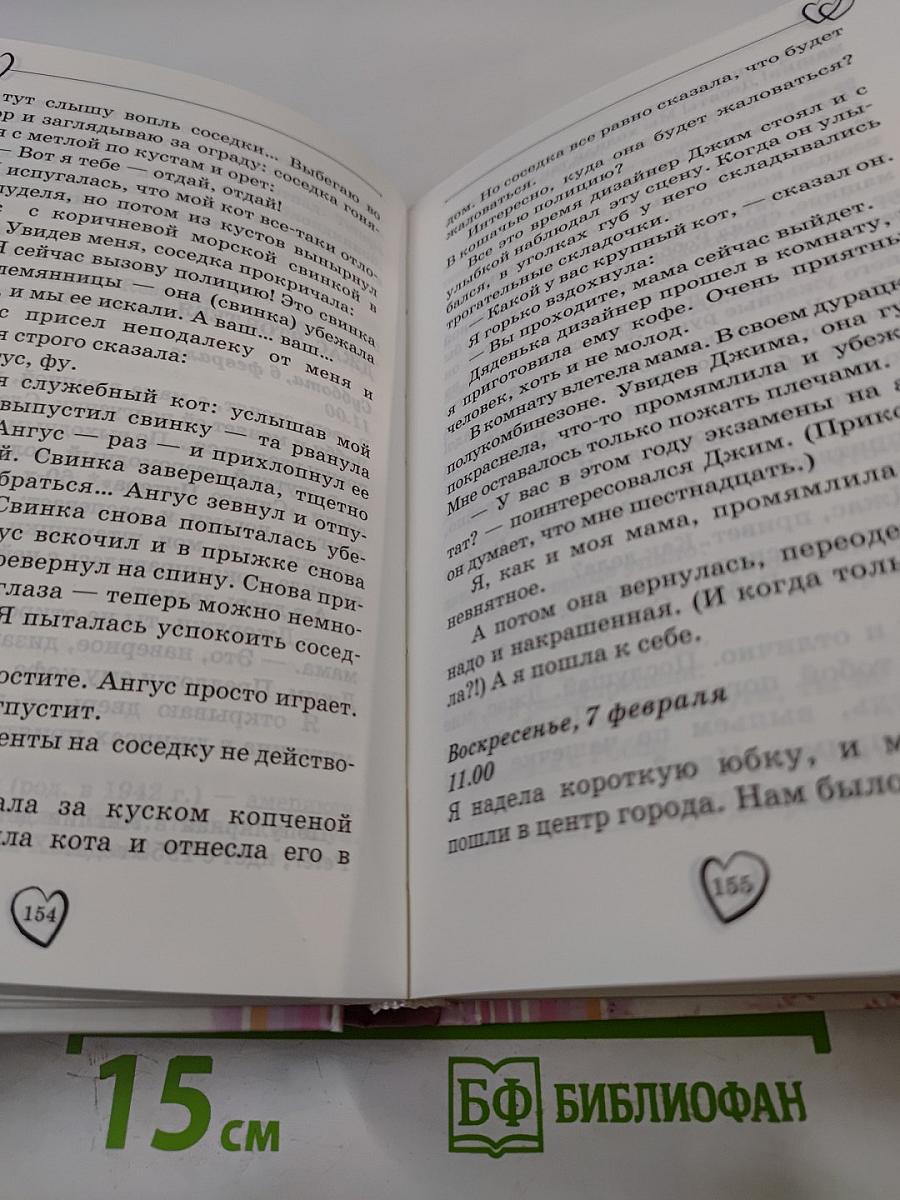 тут слышу вопль соседки... Выбегаю во
и заглядываю за ограду: соседка гоня-
с метлой по кустам и орет:
— Вот я тебе — отдай, отдай!
испугалась, что мой кот все-таки отло-
пуделя, но потом из кустов вынырнул
с коричневой морской свинкой в
Увидев меня, соседка прокричала:
Я сейчас вызову полицию! Это свинка
племянницы — она (свинка) убежала
, и мы ее искали. А ваш... ваш...
с присел неподалеку от меня и
я строго сказала:
гус, фу.
я служебный кот: услышав мой
выпустил свинку — та рванула
Ангус — раз — и прихлопнул ее
й. Свинка заверещала, тщетно
браться... Ангус зевнул и отпу-
Свинка снова попыталась убе-
ус вскочил и в прыжке снова
ревернул на спину. Снова при-
глаза — теперь можно немно-
Я пыталась успокоить сосед-
остите. Ангус просто играет.
тпустит.
енты на соседку не действо-
ала за куском копченой
ла кота и отнесла его в
154
дом. Но соседка все равно сказала, что будет
жаловаться.
Интересно, куда она будет жаловаться?
В кошачью полицию?
Все это время дизайнер Джим стоял и с
улыбкой наблюдал эту сцену. Когда он улы-
бался, в уголках губ у него складывались
трогательные складочки.
— Какой у вас крупный кот, — сказал он.
Я горько вздохнула:
— Вы проходите, мама сейчас выйдет.
Дяденька дизайнер прошел в комнату,
я приготовила ему кофе. Очень приятны
человек, хоть и не молод.
В комнату влетела мама. В своем дурацк
полукомбинезоне. Увидев Джима, она гу
покраснела, что-то промямлила и убеж
Мне оставалось только пожать плечами.
— У вас в этом году экзамены на а
тат? — поинтересовался Джим. (Прико
он думает, что мне шестнадцать.)
Я, как и моя мама, промямлила
невнятное.
А потом она вернулась, переоде
надо и накрашенная. (И когда толь
ла?!) А я пошла к себе.
Воскресенье, 7 февраля
11.00
Я надела короткую юбку, и м
пошли в центр города. Нам было
155
15 см
БФ БИБЛИОФАН